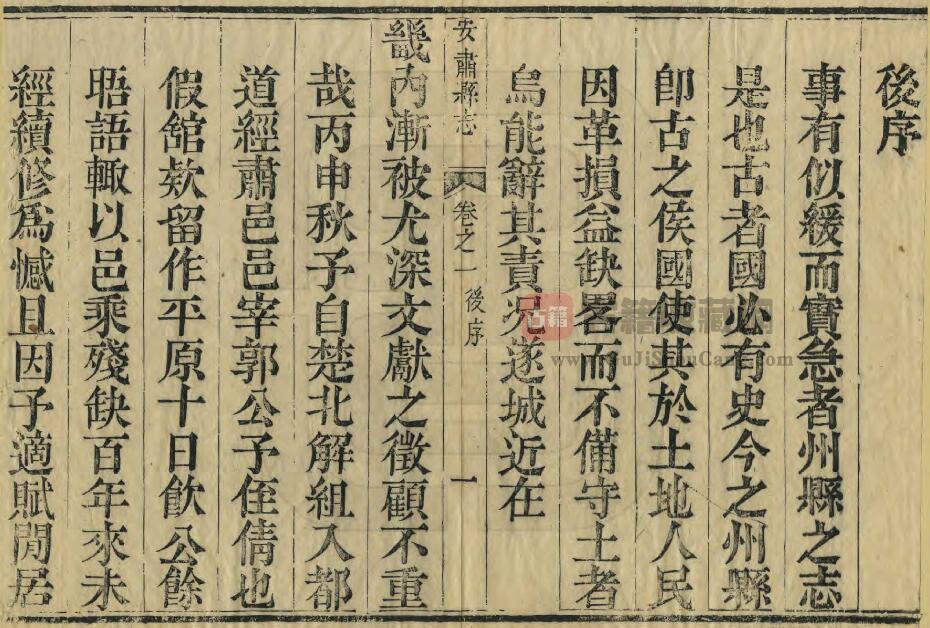 後序
事有似緩而實急者州縣之志
是也古者國必有史今之州縣
卽古之侯國使其於土地人民
因革損益缺畧而不備守土者
烏能辭其責況遂城近在
安肅縣志 卷之一 後序 一
畿內漸被尤深文獻之徵顧不重
哉丙申秋予自楚北解組入都
道經肅邑邑宰郭公予侄倩也
假舘欸留作平原十日飲公餘
晤語輙以邑乘殘缺百年來未
經續修爲憾且因予適賦閒居
古籍
www.GuJiShuCang.com